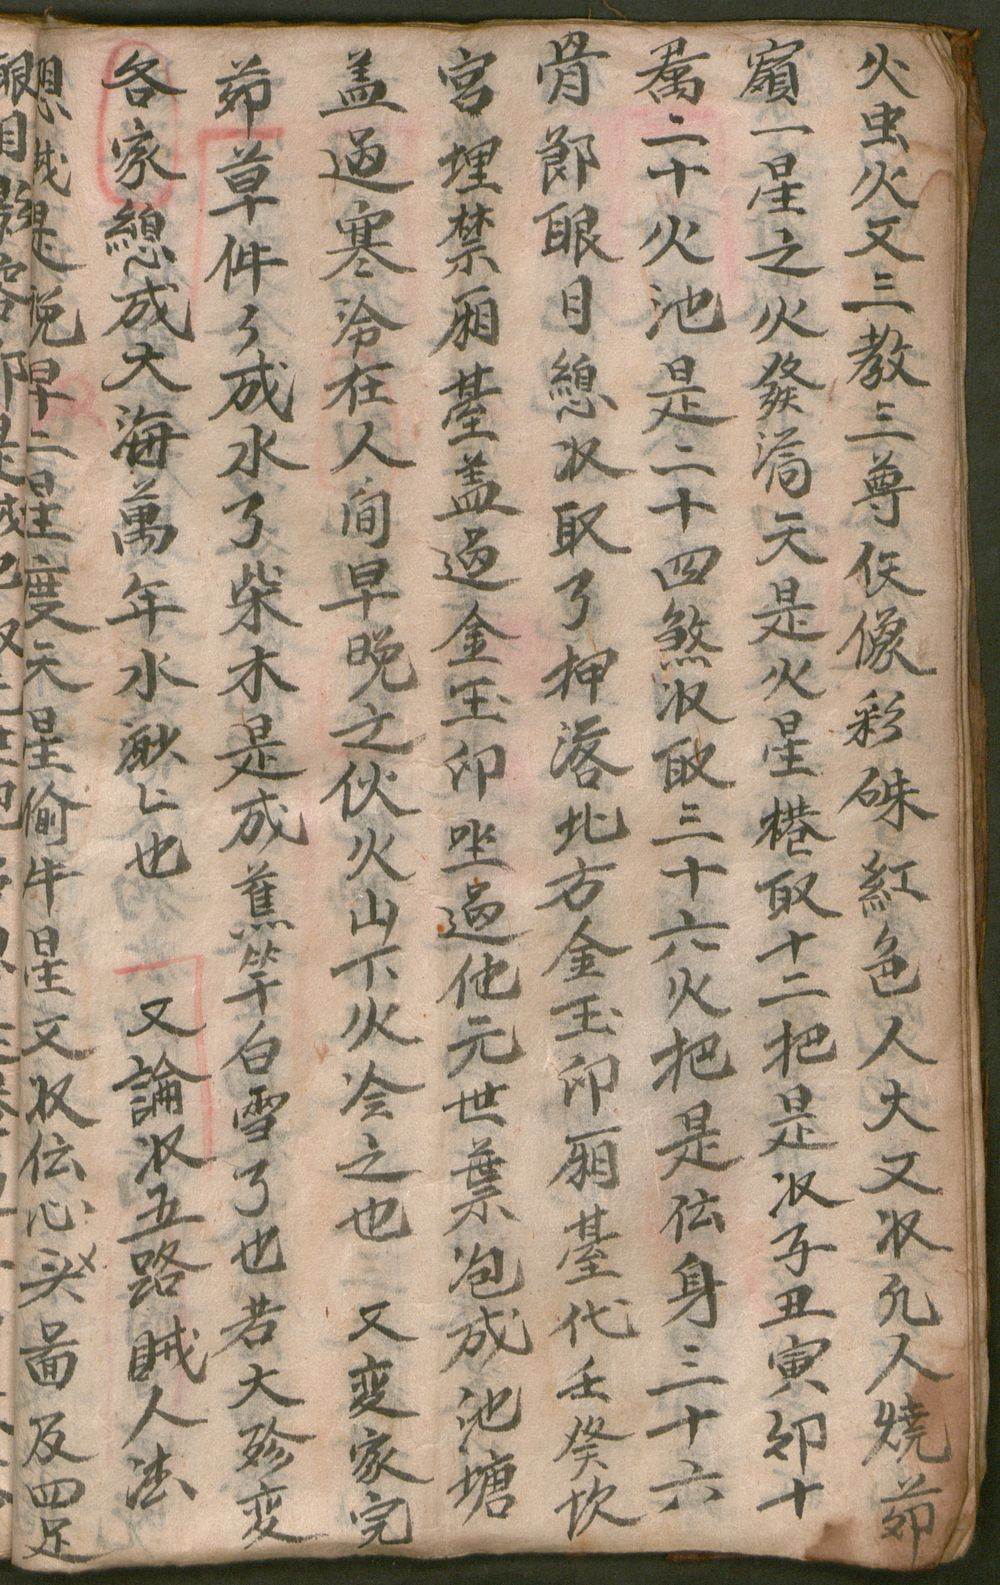 火虫火又三教三尊佚像彩硃紅色人大又収凡人燒茆
㾾一星之火發满天是火星棬取十二把是収子丑寅卯十
羣二十火池是二十四煞収取三十六火把是伝身三十六
骨節眼目緫収取了押落北方金玉印厢䑓代壬癸坎
宮埋禁厢䑓盖過金玉印坐過他元世葉泡成池塘
盖過寒冷在人间早晚之伙火山下火会之也 又變家完
茆草件々成水了柴木是成蕉竿白雪了也若大殄变
各家緫成大海萬年水渺々也 又論収五路賊人法
想賊是晚早二星度天星偷牛星又収伝心头畐及四足